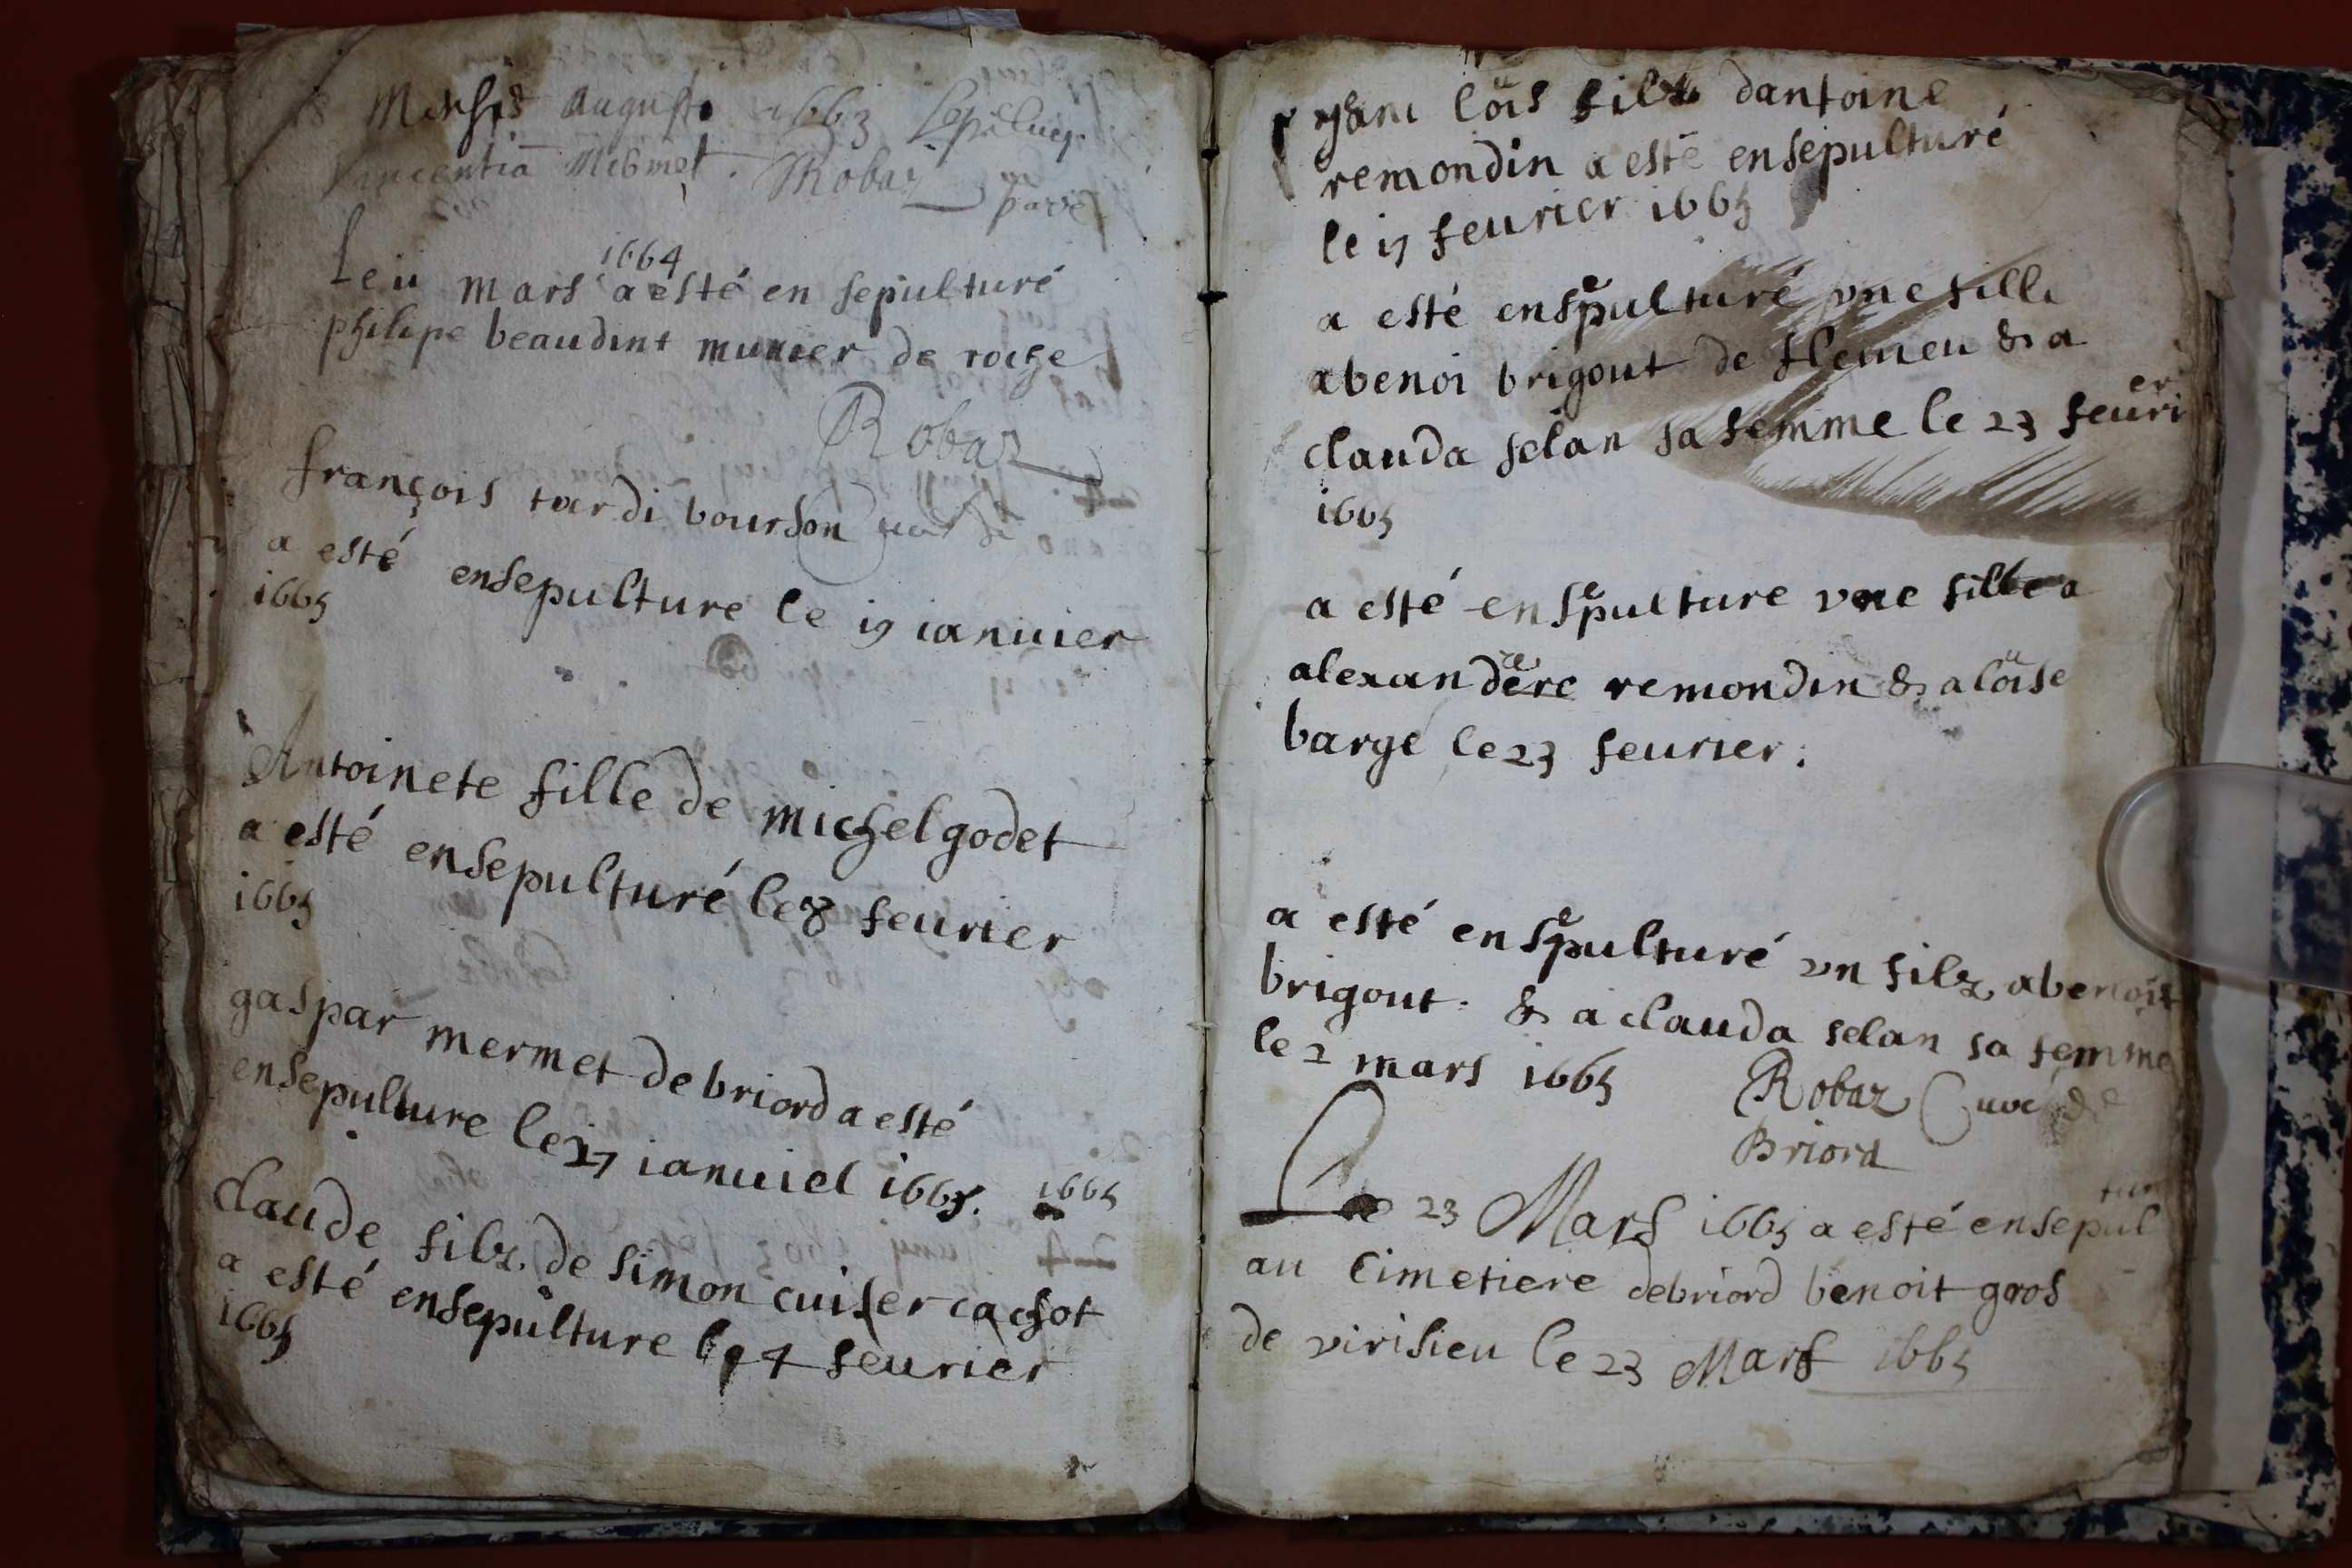 Mensis Augusti 1663 sepeluy
Vincentia Mermet. Robaz
Le ii mars 1664 a esté en sepulturé
philipe beaudint munier de roche
Robaz
françois tardi bourson
a esté ensepulture le 19 ianuier
1665
Antoinete fille de michel godet
a esté ensepulturé le 8 feurier
1665
gaspar mermet de briord a esté
ensepulture le 27 ianuiel 1665. 1665
claude filz de simon cuiser cachot
a esté ensepulture le 4 feurier
1665
loüis filz dantoine
remondin a esté ensepulturé
le 17 feurier 1665
a esté ensepulturé vne fille
a benoi brigout de flemeu & a
clauda selan sa femme le 23 feurier
1665
a esté ensepulture vne fille a
alexandere remondin & a loüise
barge le 23 feurier.
a esté ensepulturé vn filz a benoist
brigout. & a clauda selan sa femme
le 2 mars 1665 Robaz Curé de
Briord
Le 23 Mars 1665 a esté ensepultur
au Cimetiere de briord benoit gros
de virisieu le 23 Mars 1665